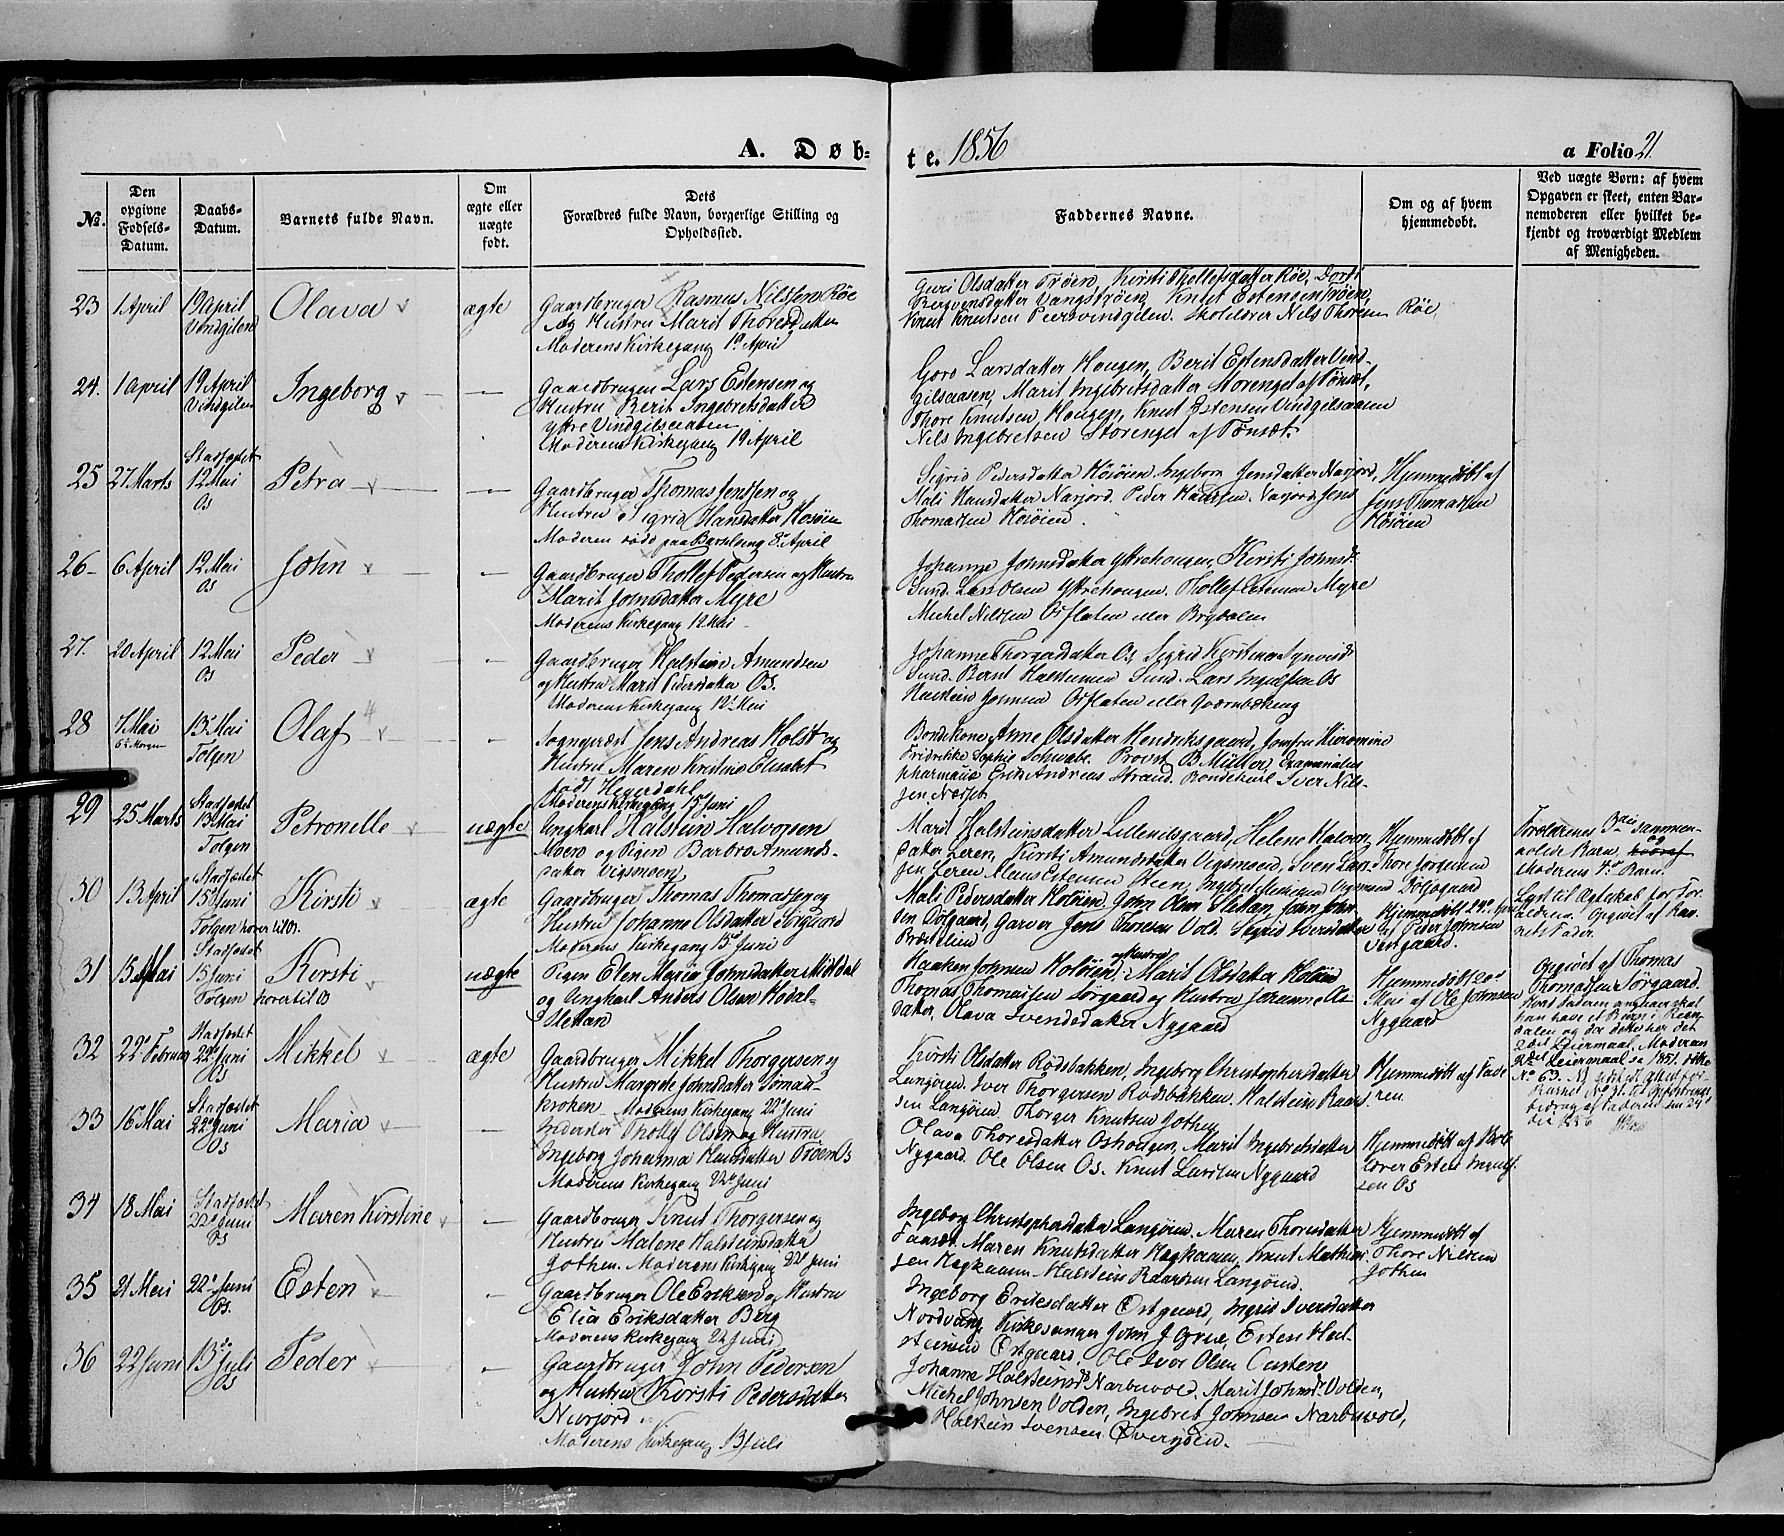 A. Døb-
te. 1856
a Folio 21.
№.
Den opgivne Fødsels-Datum.
Daabs-Datum.
Barnets fulde Navn.
Om ægte eller uægte født.
Dets Forældres fulde Navn, borgerlige Stilling og Opholdssted.
Faddernes Navne.
Om og af hvem hjemmedøbt.
Ved uægte Børn: af hvem
Opgaven er skeet, enten Bar-
nemoderen eller hvilket be-
kjendt og troværdigt Medlem
af Menigheden.
23 1 April 19 April Vindgilen Olava ægte
Gaardbruger Rasmus Nilssen Røe
og Hustru Marit Thoresdatter
Moderens Kirkegang 19 April
Guri Olsdatter Trøen, Kirsti Thollefsdatter Røe, Dordi
Bergsvensdatter Vangstrøen, Knut Estensen Trøen,
Knut Knutsen Vindgilen. Skolelærer Nils Thoresen Røe
24. 1 April 19 April Vindgilen Ingeborg —
Gaardbruger Lars Estensen og
Hustru Berit Ingebretsdatter
yttre Vindgilsaasen
Moderens Kirkegang 19 April
Goro Larsdatter Hougen, Berit Estensdatter Vind-
gilsaasen, Marit Ingebritsdatter Storenget af Tønset,
Thore Knutsen Hougen, Knut Estensen Vindgilsaasen
Nils Ingebretsen Storenget af Tønset.
25 27 Marts Stadfæstet 12 Mai Os Petra —
Gaardbruger Thomas Jensen og
Hustru Sigrid Hansdatter Hosøien
Moderen død paa Barselseng 8 April
Sigrid Pedersdatter Hosøien Ingeborg Jensdatter Narjord,
Mali Hansdatter Narjord. Peder Hansen Narjord Jens
Thomassen Hosøien.
Hjemmedøbt af
Jens Thomassen
Hosøien
26 6 April 12 Mai Os John —
Gaardbruger Thollef Pedersen og Hustru
Marit Johnsdatter Myre
Moderens Kirkegang 12 Mai
Johanne Johnsdatter Yttrehougen, Kirsti Johnsd.
Sund. Lars Olsen Yttrehougen. Thollef Estensen Myre
Michel Nilssen Osfloten eller Brydalen
27. 20 April 12 Mai Os Peder —
Gaardbruger Halstein Amundsen
og Hustru Marit Pedersdatter Os.
Moderens Kirkegang 12 Mai
Johanne Os, Sigrid
Sund. Bernt Halstensen Sund. Lars Ingulfsen Os
Halstein Jonsen Osfloten eller Qværnbækeng
28 7 Mai 6 Morgen 13 Mai Tolgen Olaf —
Sognepræst Jens Andreas Holst og
Hustru Maren Kristine Elisabet
født Heyerdahl
Moderens Kirkegang 15 Juni
Bondekone Anne Olsdatter Hendriksgaard, Jomfru Hieronimine
Fridrikke Sophie Schwabe. Provst B. Müller, Examinatus
pharmacie Erik Andreas Strand. Bondekarl Iver Nils-
sen Næsset
29 25 Marts Stadfæstet 13 Mai Tolgen Petronelle uægte
Ungkarl Halstein Halvorsen
Moen og Pigen Barbro Amunds-
datter Vigsmoen
Marit Halsteinsdatter Lillensgaard, Helene Halvors-
datter Leren, Kirsti Amundsdatter Vigsmoen, Sven Lar-
sen Leren Mons Estensen Steen, Vigsmoen
Hjemmedøbt af
Thore Jørgensen
Forældrenes 3die sammen-
avlede Barn, og
Moderens 4de Barn.
Lyst til Ægteskab for For-
ældrene. Opgivet af Bar-
nets Fader.
30 13 April Stadfæstet 15 Juni Tolgen hører til Os. Kirsti ægte
Gaardbruger Thomas Thomassen og
Hustru Johanne Olsdatter Sørgaard
Moderens Kirkegang 15 Juni
Mali Pedersdatter Holøien. John Olsen Slettan, John John-
sen Gaarver Jens Thoresen Vold. Sigrid Iversdatter
Præstelien
Hjemmedøbt
af Peder Johnsen
31 15 Mai Stadfæstet 15 Juni Tolgen hører til Os Kirsti uægte
Pigen Elen Maria Johnsdatter Midtdal
og Ungkarl Anders Olsen Hodal-
Slettan
Haaken Johnsen Holøien og Hustru Marit Olsdatter Holøien
Thomas Thomassen Sørgaard og Hustru Johanne Ols-
datter, Olava Svendsdatter Nygaard
Hjemmedøbt 20
Mai af Ole Johnsen
Nygaard
Opgivet af Thomas
Thomassen Sørgaard.
32 22 Februar Stadfæstet 22 Juni Os Mikkel ægte
Gaardbruger Mikkel Thorgersen og
Hustru Margrete Johnsdatter Sømaa-
kroken Moderens Kirkegang 22 Juni
Kirsti Olsdatter Rødsbakken, Ingeborg Christophersdatter
Langøien. Iver Thorgersen Rødsbakken. Halstein Raar-
sen Langøien, Thorger Knutsen Jothen
Hjemmedøbt af Fade-
ren
33 16 Mai Stadfæstet 22 Juni Os Maria —
Inderster Thollef Olsen og Hustru
Ingeborg Johanna Hansdatter Trøen Os
Moderens Kirkegang 22 Juni
Olava Thoresdatter Oshougen, Marit Ingebretsdatter
Nygaard Ole Olsen Os. Knut Larssen Nygaard
Hjemmedøbt af Skole-
lærer Esten Ingulf-
sen Os
34 18 Mai Stadfæstet 22 Juni Os Maren Kirstine —
Gaardbruger Knut Thorgersen og
Hustru Malene Halsteinsdatter
Jothen. Moderens Kirkegang 22 Juni
Ingeborg Christophersdatter Langøien. Maren Thoresdatter
Tamset. Maren Knutsdatter Hagkaanen, Knut Mathi-
sen Hagkaanen Halstein Raarsen Langøien
Hjemmedøbt af
Thore Nilsen
Jothen
35 21 Mai 22 Juni Os. Esten —
Gaardbruger Ole Eriksen og Hustru
Elia Eriksdatter Berg
Moderens Kirkegang 22 Juni
Ingeborg Eriksdatter Østgaard, Ingrid Iversdatter
Nordvang, Kirkesanger John J. Grue, Esten Hal-
steinsen Østgaard, Ole Iver Olsen Oasten
36 22 Juni 13 Juli Os Peder —
Gaardbruger John Pedersen
og Hustru Kirsti Pedersdatter
Narjord.
Moderens Kirkegang 13 Juli
Johanne Halsteinsd. Narbuvold, Marit Johnsd. Volden,
Michel Johnsen Volden, Ingebret Johnsen Narbuvold,
Halstein Svensen Øversjøen.